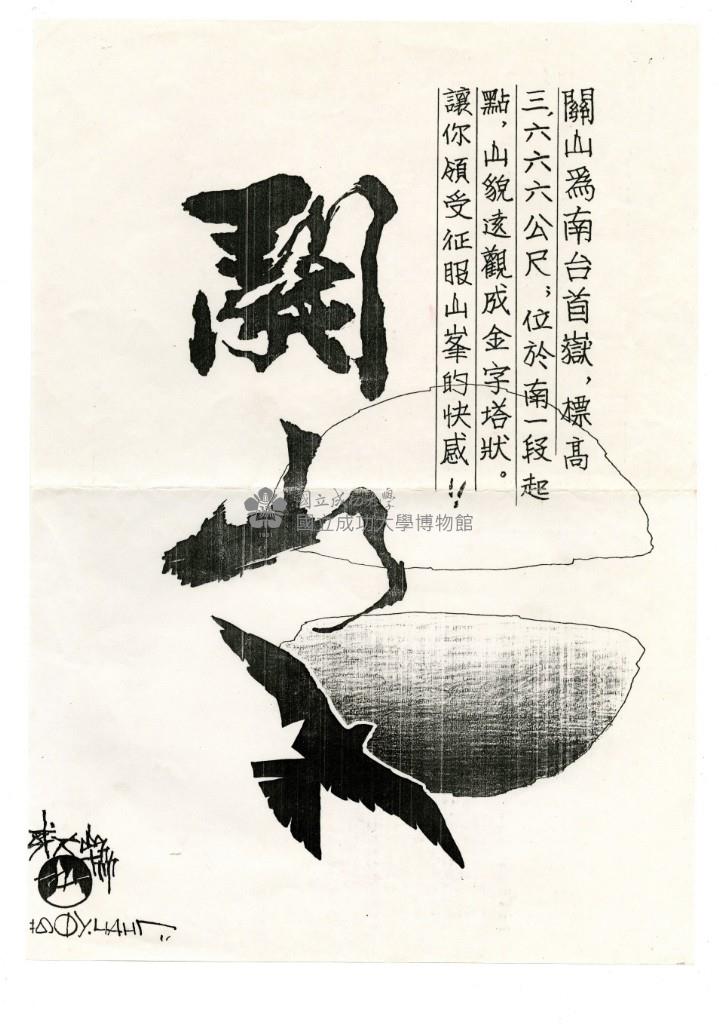 關山為南台首嶽，標高
三,六六六公尺；位於南一段起
點，山貌遠觀成金字塔狀。
讓你領受征服山峯的快感!!
關山
國立成功大學
國立成功大學博物館
1931
成大山協
山